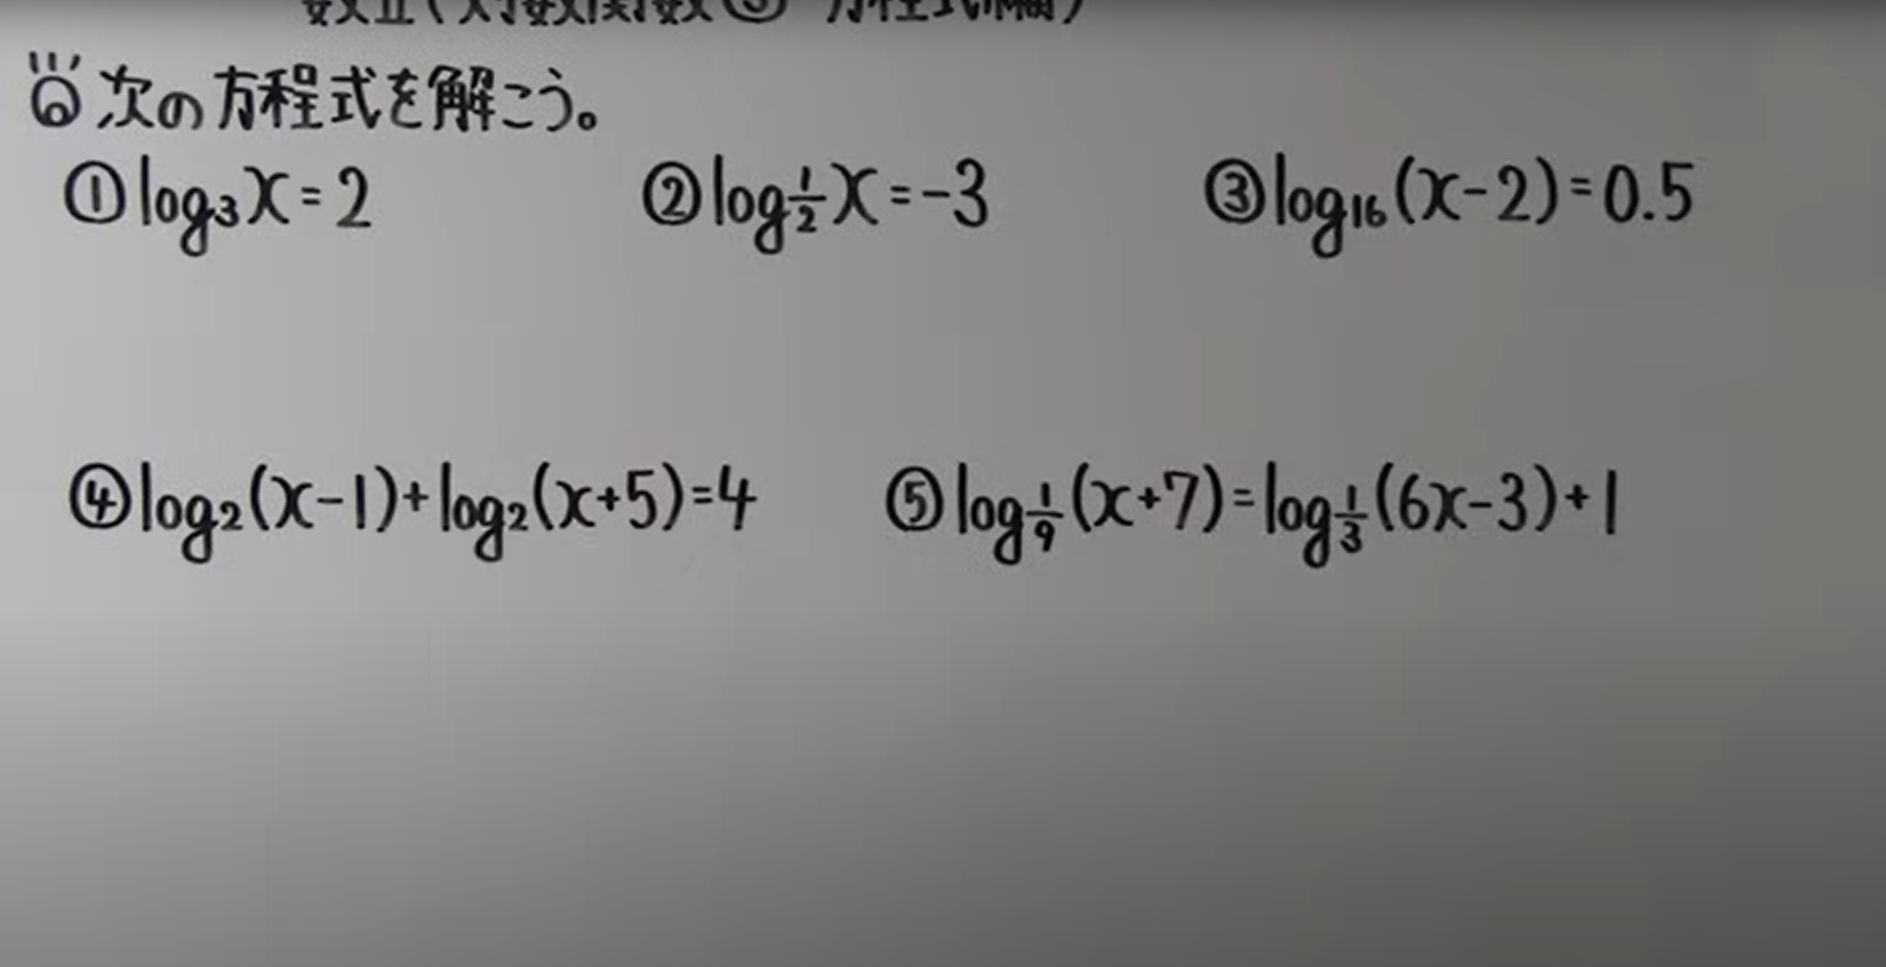 数Ⅱ(対数関数⑤ 方程式編)
次の方程式を解こう。
①log₃x=2 ②log½x=-3 ③log₁₆(x-2)=0.5
④log₂(x-1)+log₂(x+5)=4 ⑤log1/9(x+7)=log1/3(6x-3)+1